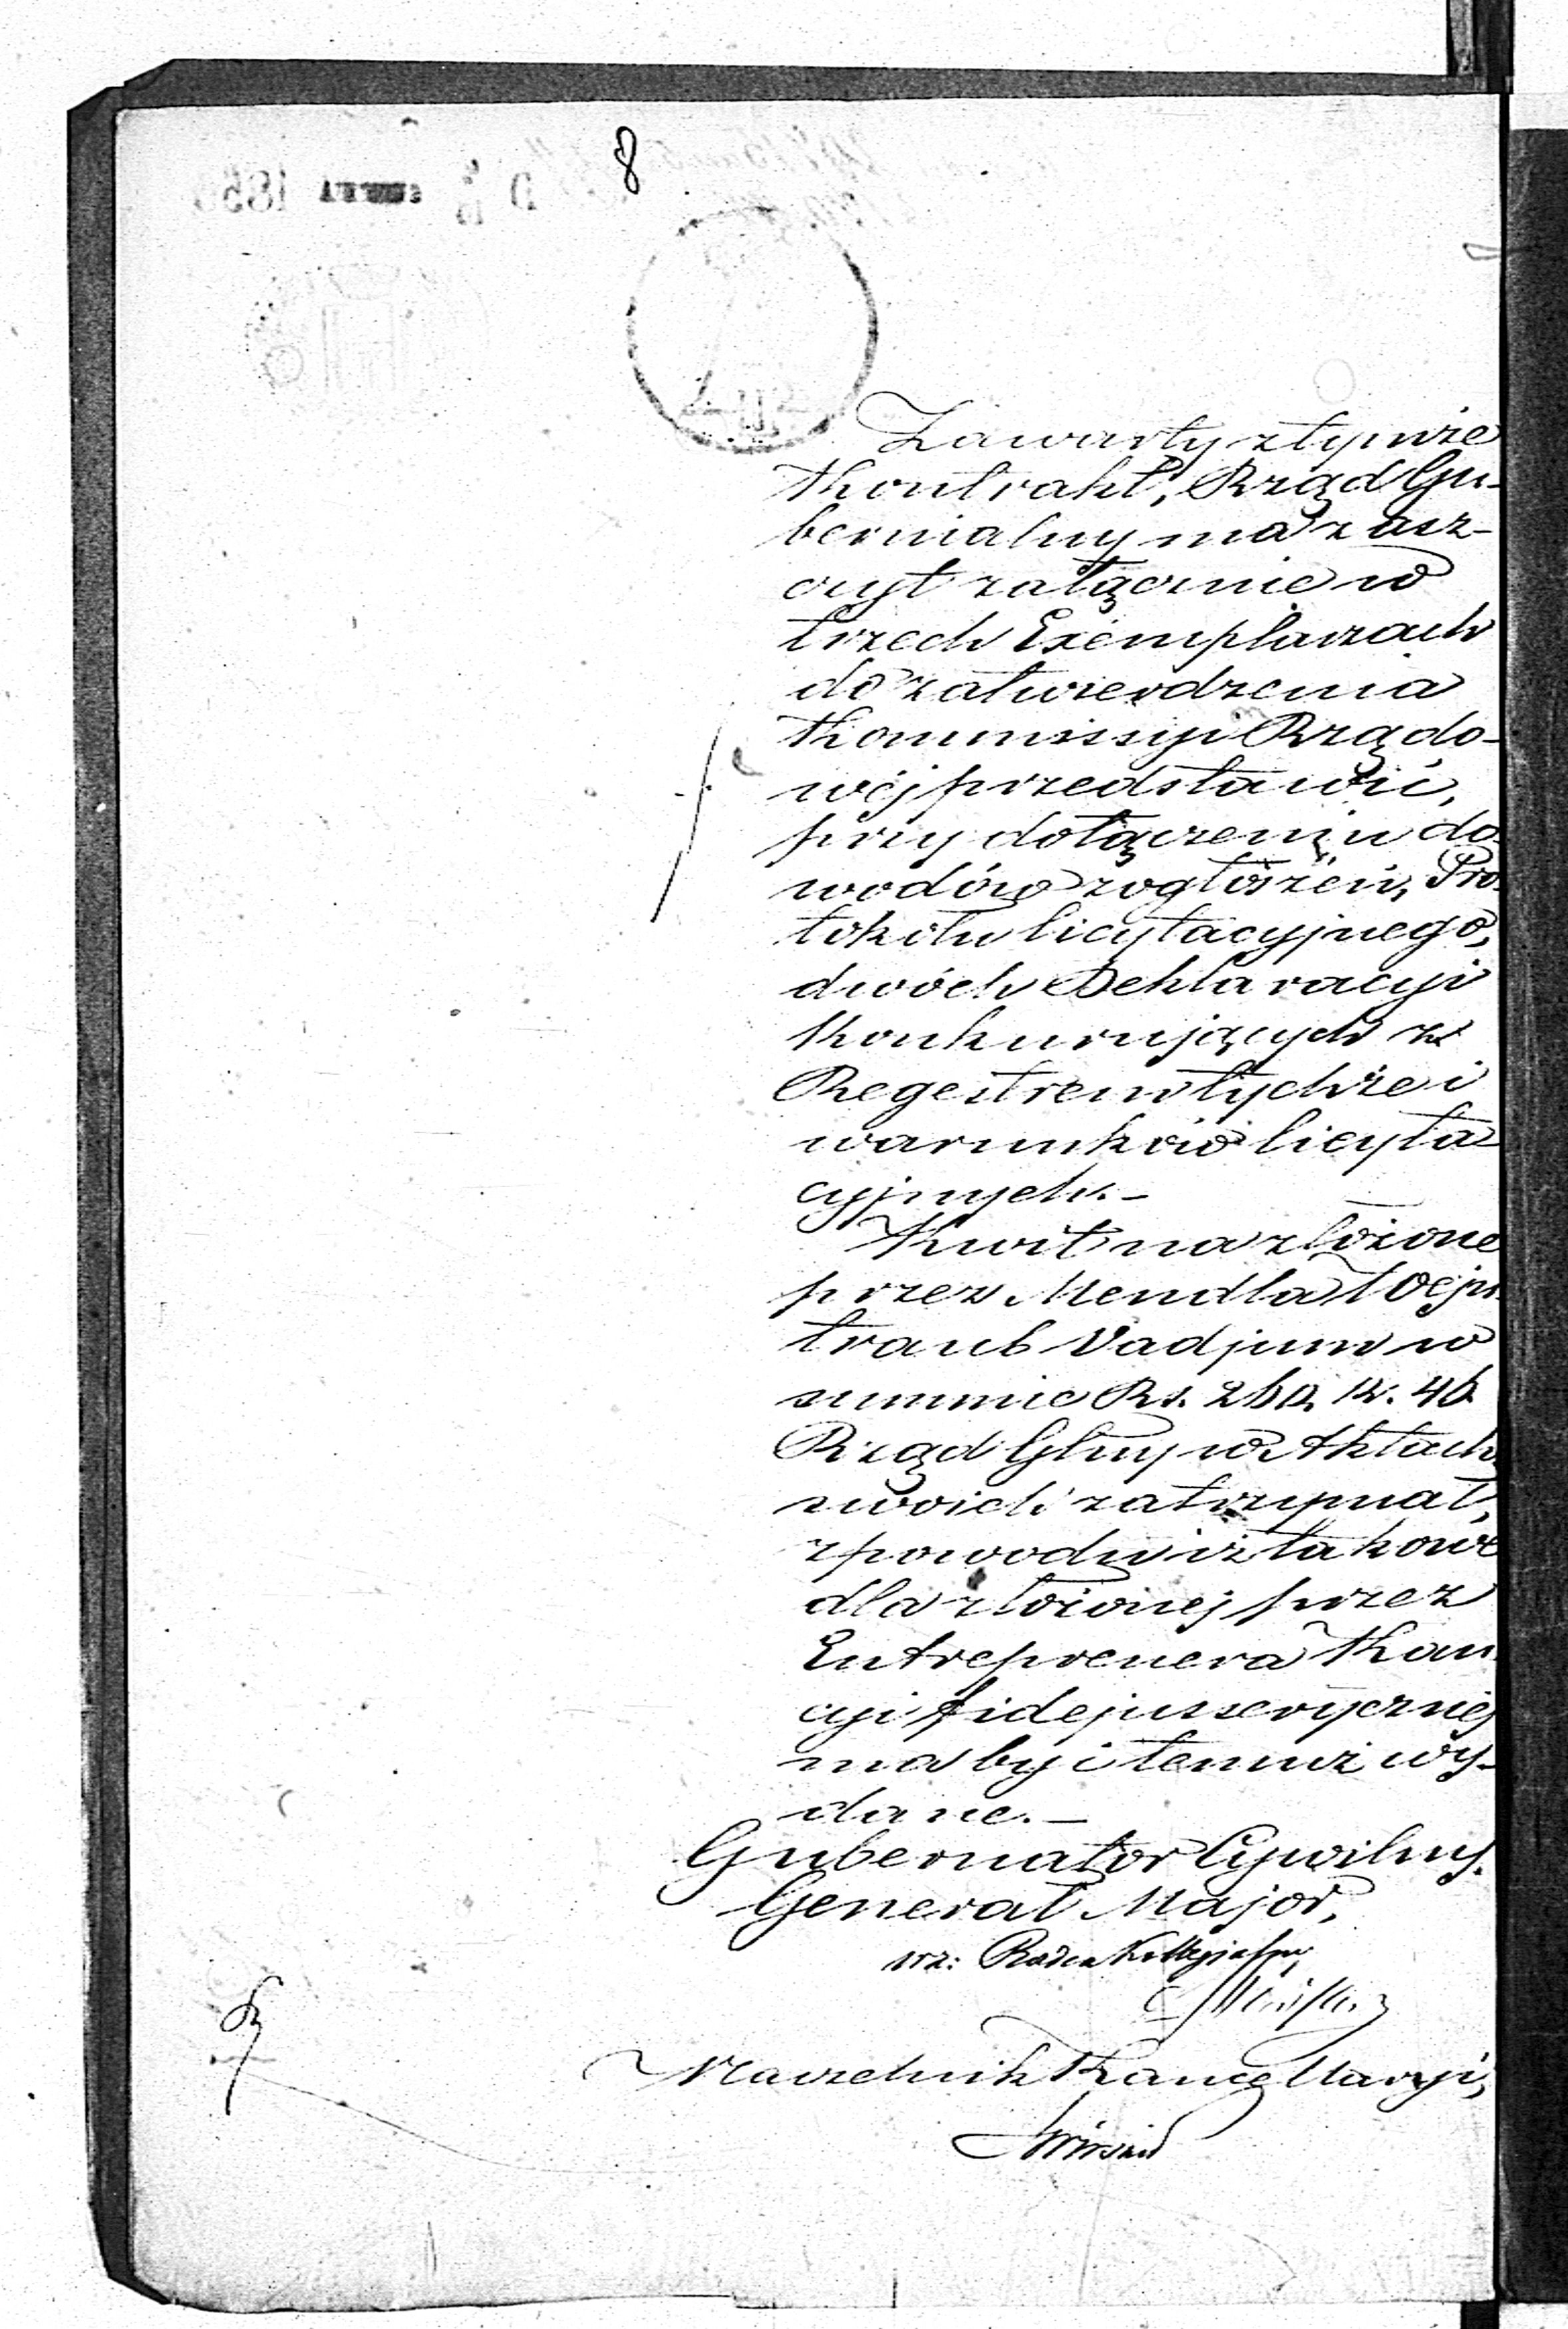 8
Zawarty z tymże
Kontrakt, Rząd Gu-
bernialny ma zasz-
czyt załącznie w
trzech Exemplarzach
do zatwierdzenia
Kommissyi Rządo-
wéj przedstawić,
przy dołączeniu do-
wodów z ogłoszeń, Pro-
tokółu licytacyjnego,
dwóch Deklaracyi
Konkurujących z
Regestrem tychże i
warunków licyta-
cyjnych.-
Kwit na złożone
przez Mendla Wejn-
traub Vadjum w
summie Rs. k. 46
Rząd Glny w Aktach
swoich zatrzymał,
z powodu iż takowe
dla złożonej przez
Entreprenera Kau-
cyi fidejussorycznej
ma być temuż wy-
dane.-
Gubernator Cywilny.
Generał Major,
wz: Radca Kollegialny,
Naczelnik Kancellaryi,